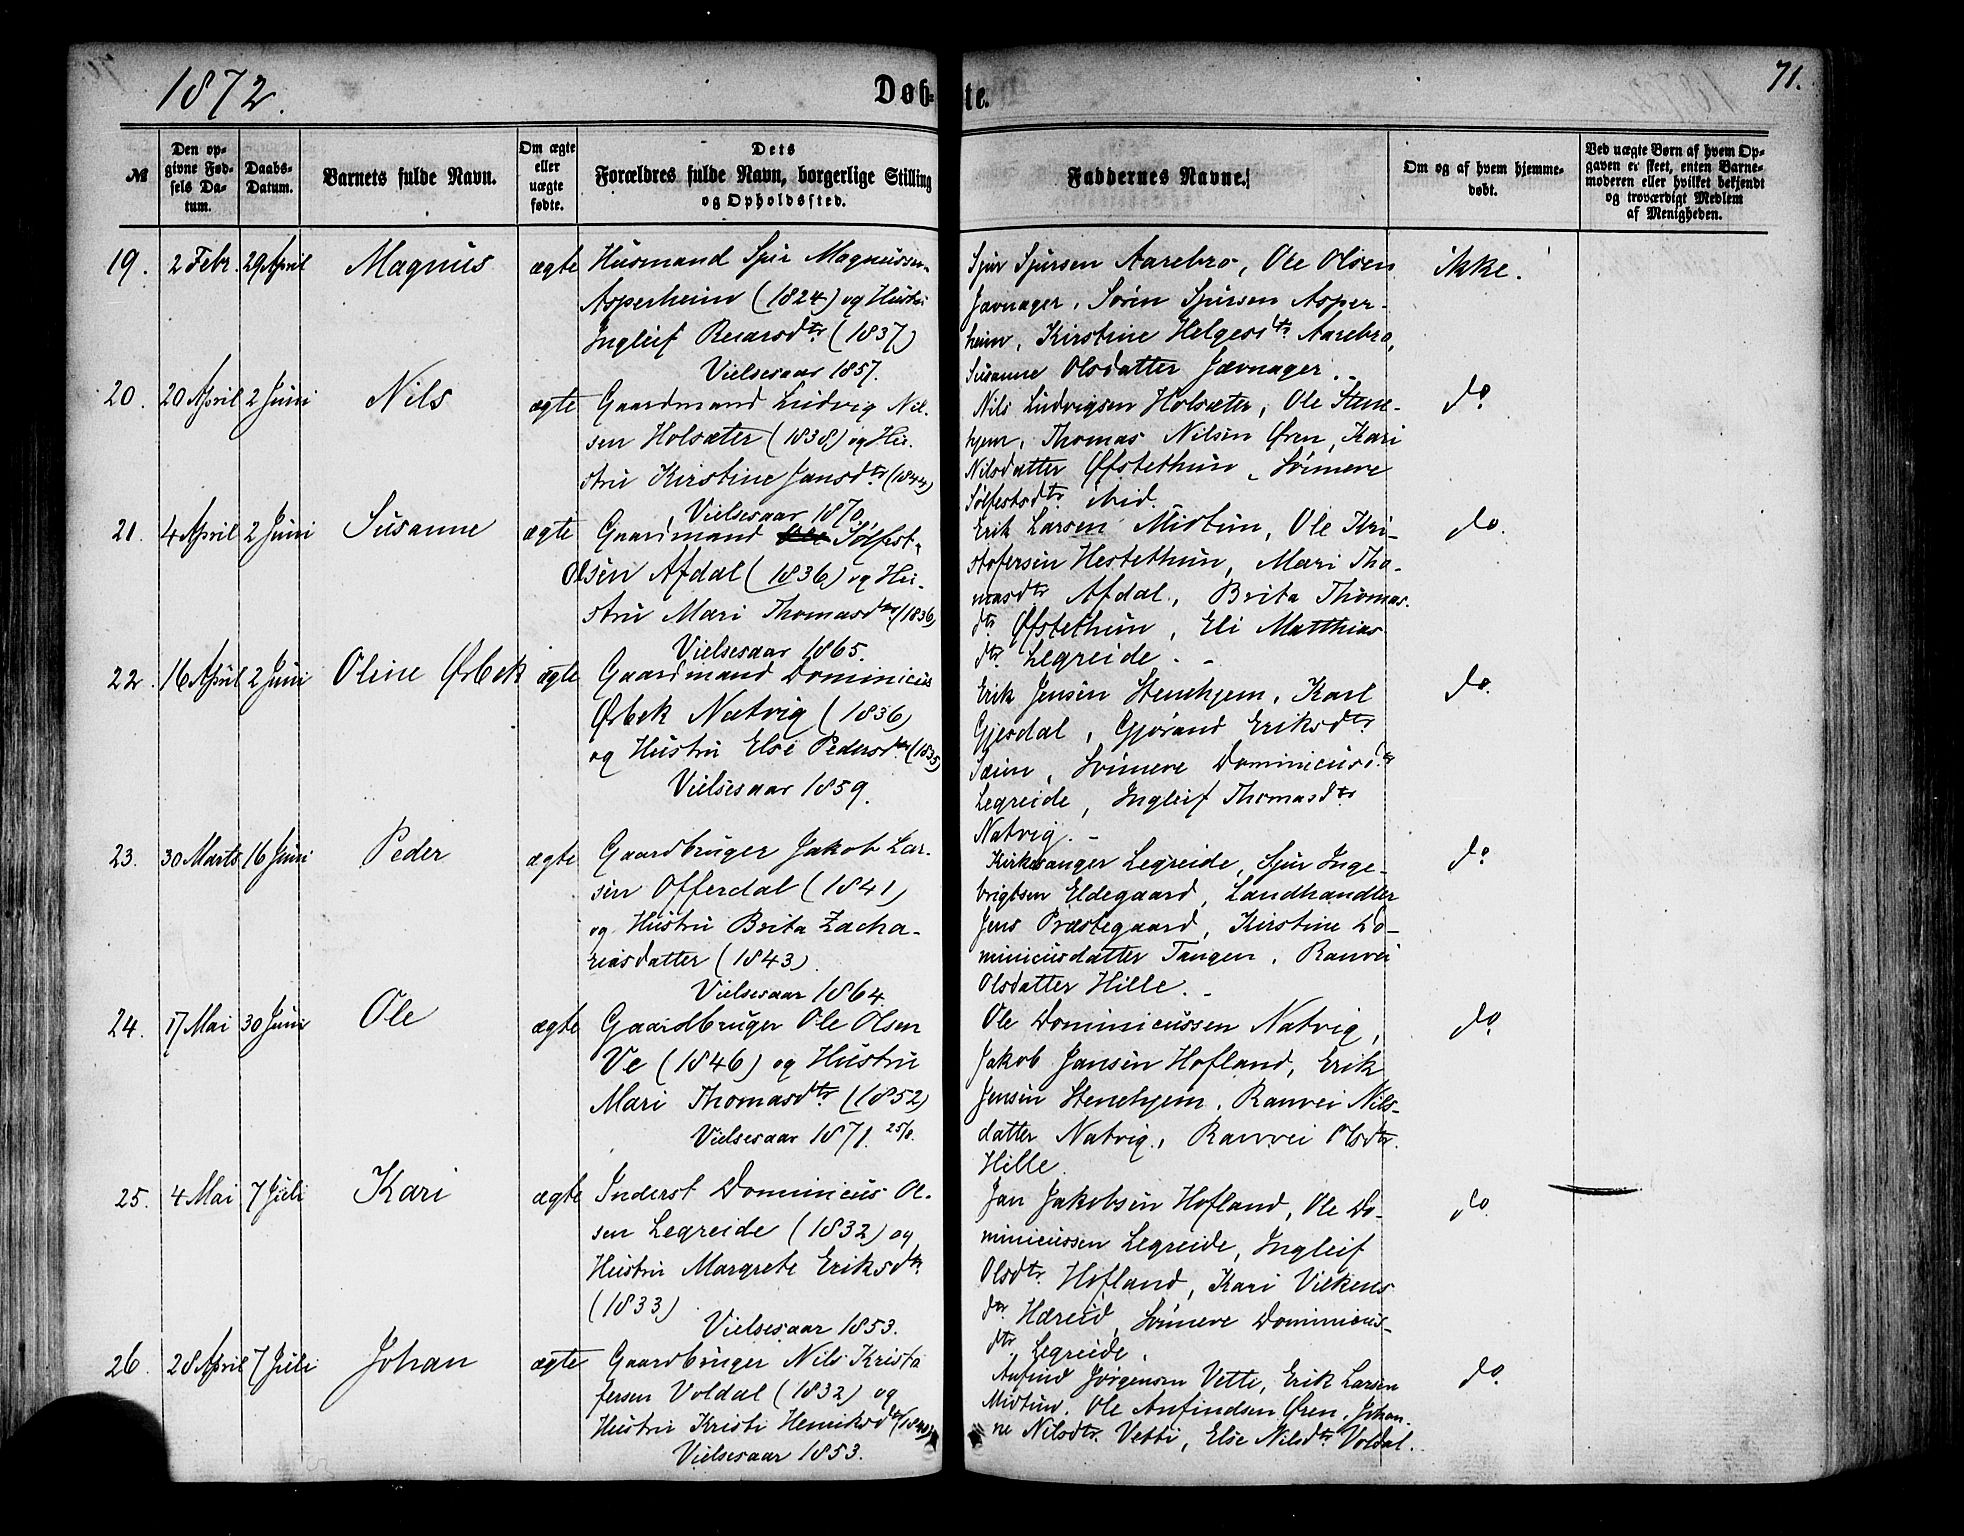 1872.
Døb-
te.
71.
№
Den op-
givne Fød-
sels Da-
tum.
Daabs-
Datum.
Barnets fulde Navn.
Om ægte
eller
uægte
fødte.
Dets
Forældres fulde Navn, borgerlige Stilling
og Opholdssted.
Faddernes Navne.
Om og af hvem hjemme-
døbt.
Ved uægte Børn af hvem Op-
gaven er skeet, enten Barne-
moderen eller hvilket bekjendt
og troværdigt Medlem
af Menigheden.
19. 2 Febr. 29 April Magnus ægte
Husmand Sjur Magnussen
Asperheim (1824) og Hustru
Ingleif Reiarsdtr (1837)
Vielsesaar 1857.
Sjur Sjursen Aarebro, Ole Olsen
Jævnager, Søren Sjursen Asper-
heim, Kirstine Helgesdtr Aarebro,
Susanne Olsdatter Jævnager.
ikke.
20. 20 April 2 Juni Nils ægte
Gaardmand Ludvig Nil-
sen Holsæter (1838) og Hu-
stru Kirstine Jansdtr (1844)
Vielsesaar 1870.
Nils Ludvigsen Holsæter, Ole Stene-
hjem, Thomas Nilsen Øren, Kari
Nilsdatter Øfstethun, Synneve
Sølfestsdtr ibid.
do
21. 4 April 2 Juni Susanne ægte
Gaardmand Sølfest
Olsen Afdal (1836) og Hu-
stru Mari Thomasdtr (1836)
Vielsesaar 1865.
Erik Larsen Midtun, Ole Kri-
stofersen Hestethun, Mari Tho-
masdtr Afdal, Brita Thomas-
dtr Øfstethun, Eli Matthias
dtr Legreide. -
do.
22. 16 April 2 Juni Oline Ørbek ægte
Gaardmand Dominicus
Ørbek Natvig (1836)
og Hustru Else Pedersdtr (1835)
Vielsesaar 1859.
Erik Jensen Stenehjem, Karl
Gjesdal, Gjørand Eriksdtr
Sæim, Synneve Dominicusdtr
Legreide, Ingleif Thomasdtr
Natvig. -
do.
23. 30 Marts 16 Juni Peder ægte
Gaardbruger Jakob Lar-
sen Offerdal (1841)
og Hustru Brita Zacha-
riasdatter (1843)
Vielsesaar 1864.
Kirkesanger Legreide, Sjur Inge-
brigtsen Eldegaard, Landhandler
Jens Præstegaard, Kirstine Do-
minicusdatter Tangen, Ranvei
Olsdatter Hille. -
do
24. 17 Mai 30 Juni Ole ægte
Gaardbruger Ole Olsen
Ve (1846) og Hustru
Mari Thomasdtr (1852)
Vielsesaar 1871.
Ole Dominicussen Natvig,
Jakob Jansen Hofland, Erik
Jensen Stenehjem, Ranvei Nils-
datter Natvig, Ranvei Olsdtr
Hille.
do
25. 4 Mai 7 Juli Kari ægte
Inderst Dominicus Ol-
sen Legreide (1832) og
Hustru Margrete Eriksdtr
(1833)
Vielsesaar 1853.
Jan Jakobsen Hofland, Ole Do-
minicussen Legreide, Ingleif
Olsdtr Hofland, Kari Vilkens
dtr Hæreid, Synneve Dominicus-
dtr Legreide.
do.
26. 28 April 7 Juli Johan ægte
Gaardbruger Nils Kristo
fersen Voldal (1832) og
Hustru Kristi Henriksdtr
Vielsesaar 1853.
Anfind Jørgensen Vetti, Erik Larsen
Midtun, Ole Anfindsen Øren, Johan-
ne Nilsdtr Vetti, Else Nilsdtr Voldal.
do